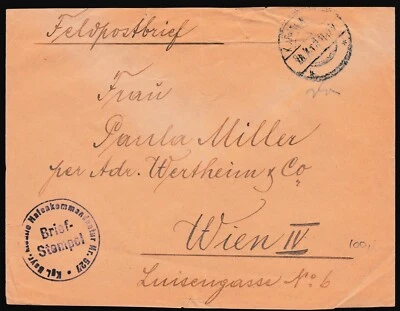 Feldpostbrief
Frau
Paula Miller
per Adr. Wertheim & Co
Wien IV
Luisengasse No 6
Brief-
Stempel
Kgl. Bayr. Hafenkommandantur Nr. 527